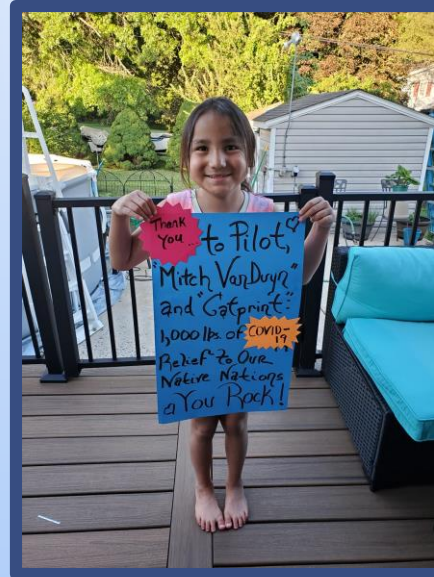 Thank
You...
to Pilot,
"Mitch VanDuyn"
and "Catprint"
1,000 lbs. of COVID-
19
Relief to Our
Native Nations
You Rock!